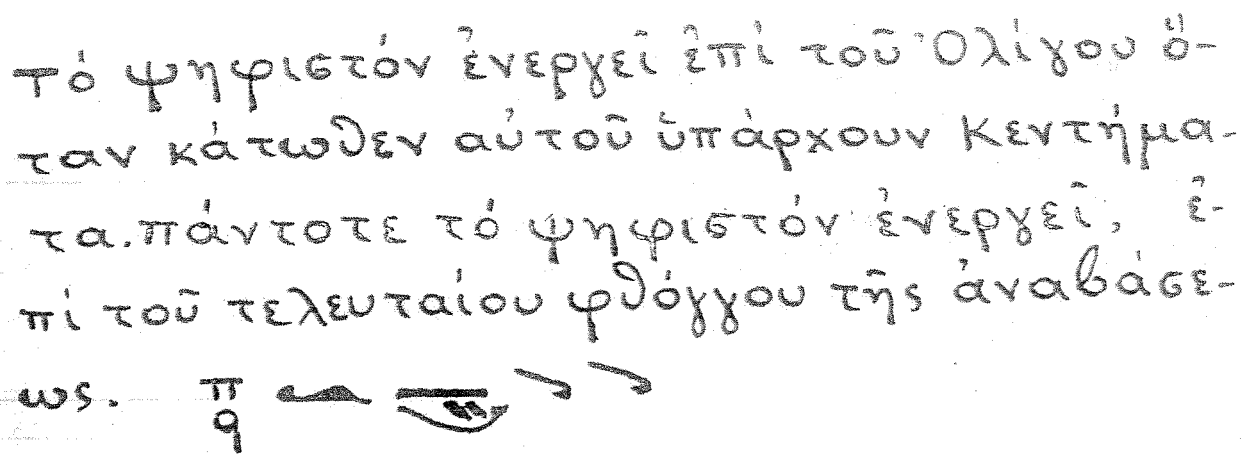 Τό ψηφιστόν ἐνεργεῖ ἐπί τοῦ Ὀλίγου ὅ-
ταν κάτωθεν αὐτοῦ ὑπάρχουν Κεντήμα-
τα. πάντοτε τό ψηφιστόν ἐνεργεῖ, ἐ-
πί τοῦ τελευταίου φθόγγου τῆς ἀναβάσε-
ως. π
q